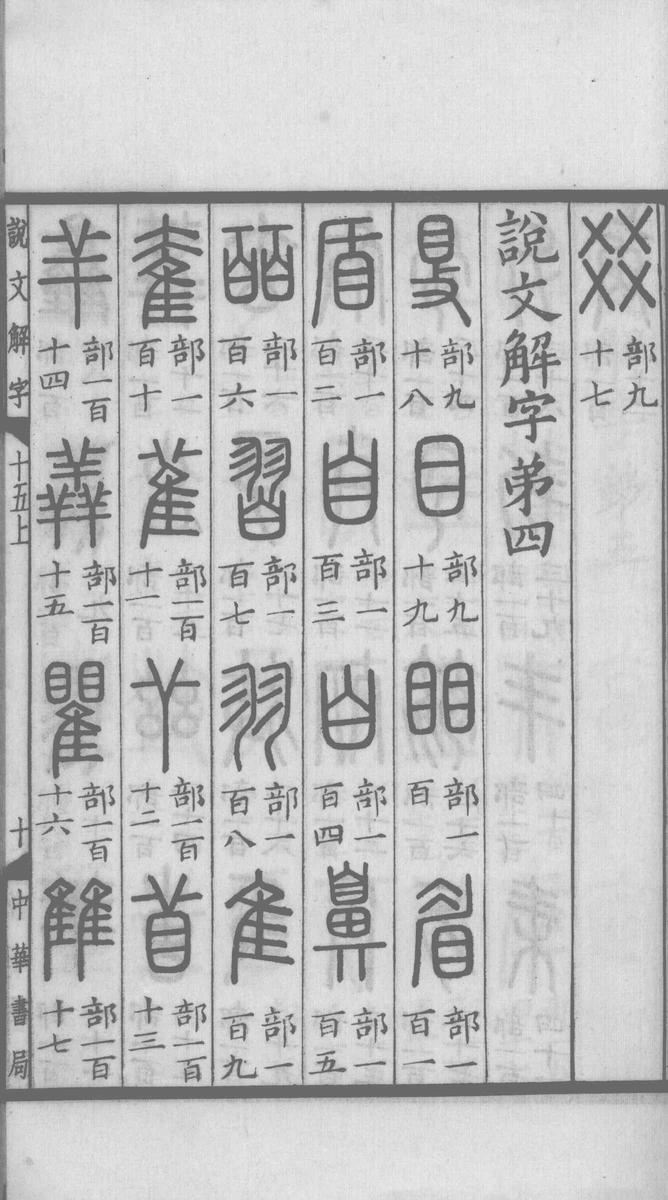 㸚部九十七
說文解字弟四
𥄎部九十八目部九十九䀠部一百眉部一百一
盾部一百二自部一百三白部一百四鼻部一百五
皕部一百六習部一百七羽部一百八隹部一百九
奞部一百十雈部一百十一𠁥部一百十二苜部一百十三
羊部一百十四羴部一百十五瞿部一百十六雔部一百十七
說文解字 十五上 十 中華書局